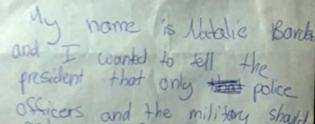 My name is Natalie Bonds
and I wanted to tell the
president that only police
officers and the military should